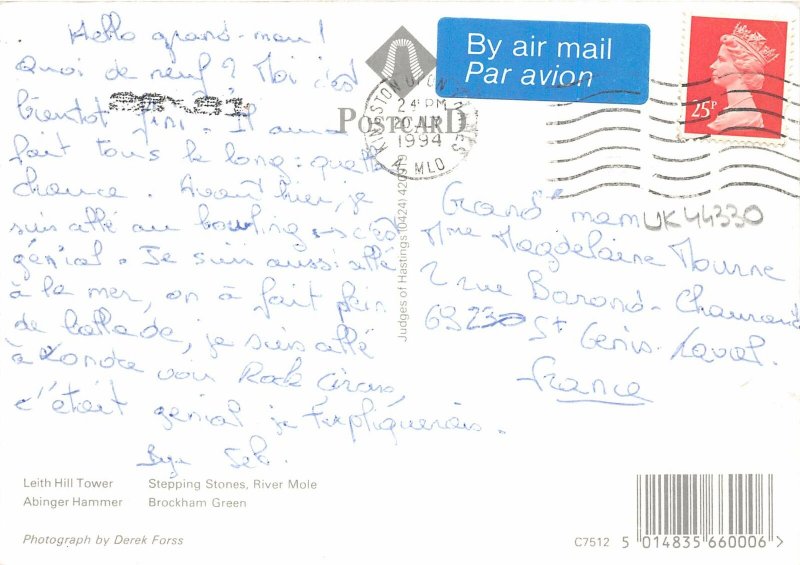 Hello grand-mam!
Quoi de neuf? Moi c'est
bientôt fini. Il a
fait tous le long: quelle
chance. Avant hier, je
suis allé au bowling c'est
génial. Je suis aussi allé
à la mer, on à fait plein
de ballade, je suis allé
à Londre voir Rock Circus,
c'était génial je t'expliquerais.
Bye Seb.
By air mail
Par avion
25P
POSTCARD
KINGSTON UPON THAMES
PM
1994
Judges of Hastings (0424) 420919
UK44330
Grand mam
Mme Magdelaine Mourne
2 rue Barond-Chaurand
69230 St Genis-Laval.
France
Leith Hill Tower Stepping Stones, River Mole
Abinger Hammer Brockham Green
Photograph by Derek Forss
C7512 5 014835 660006 >